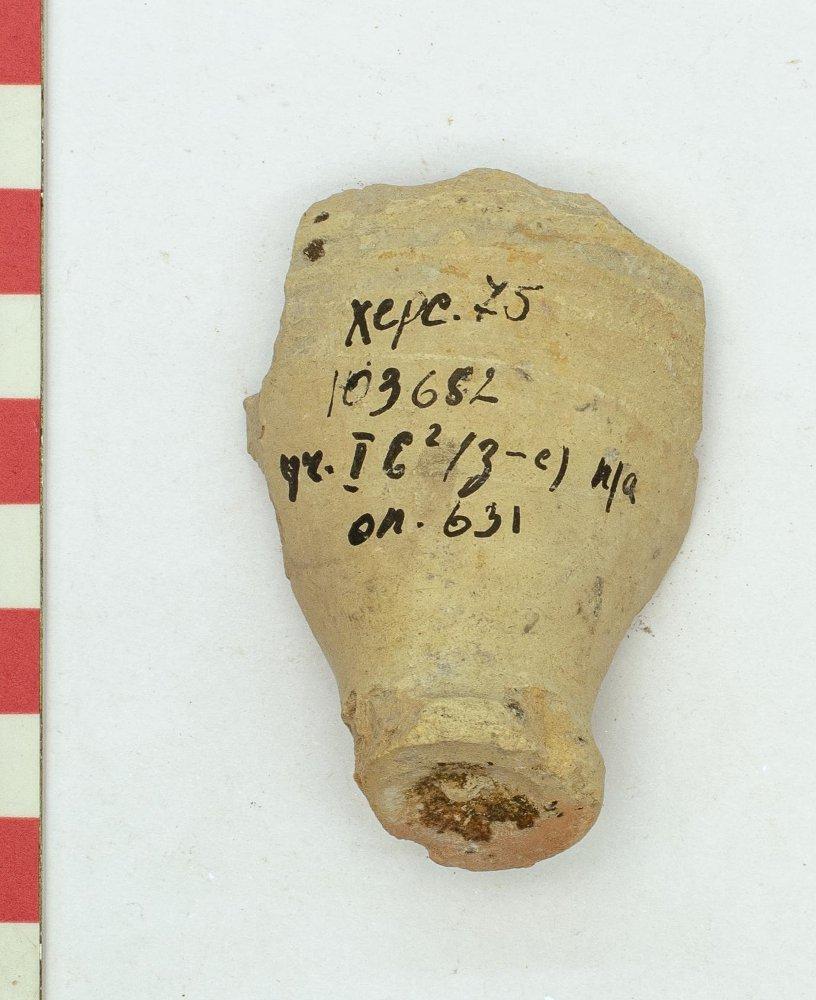 Херс. 75
103682
уч. I б² (з-е) п/а
оп. 631